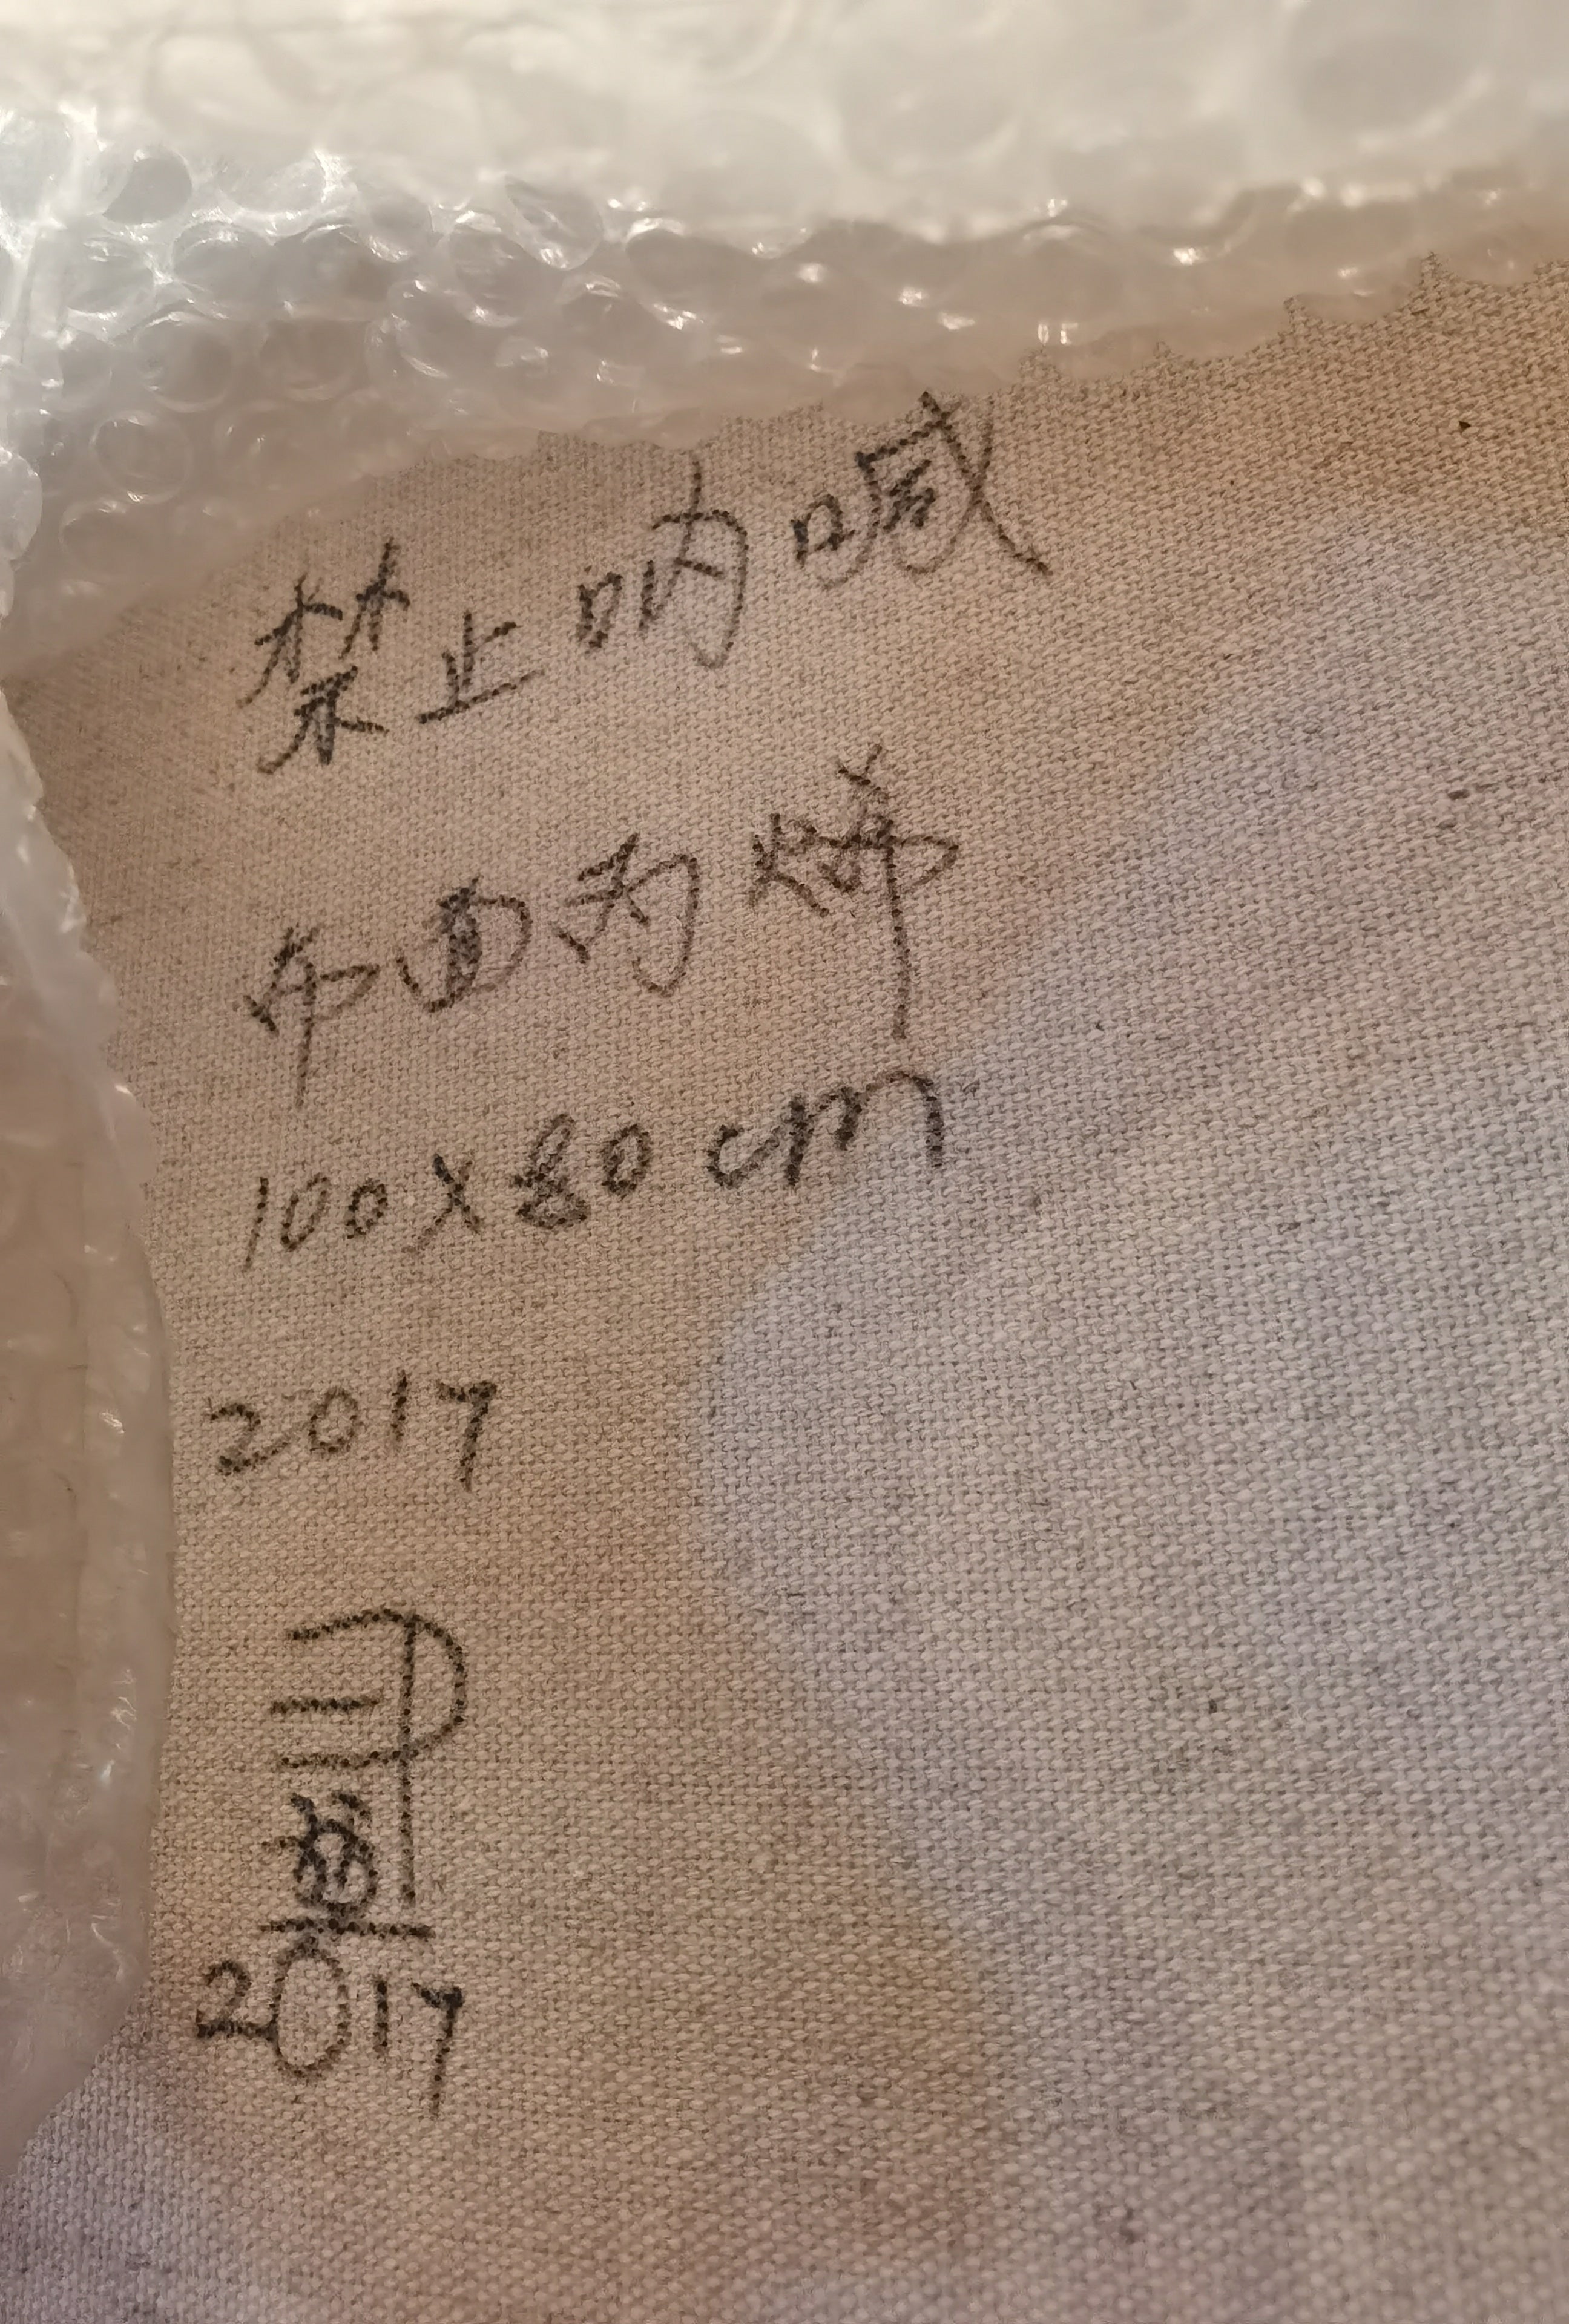 禁止呐喊
布面丙烯
100x80cm
2017
2017